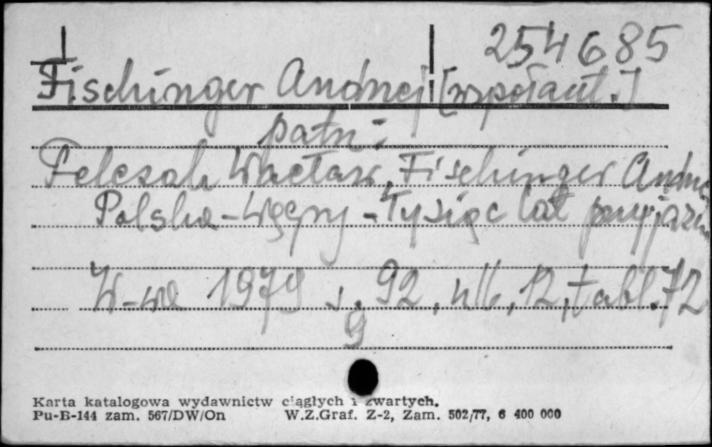 254685
Fischinger Andrzej [współaut.]
patrz:
Felczak Wacław, Fischinger Andrzej
Polska-Węgry-Tysiąc lat przyjaźn
W-wa 1979 s. 92, nlb. 12, tabl. 72
9
Karta katalogowa wydawnictw ciągłych i zwartych.
Pu-B-144 zam. 567/DW/On W.Z.Graf. Z-2, Zam. 502/77, 6 400 000